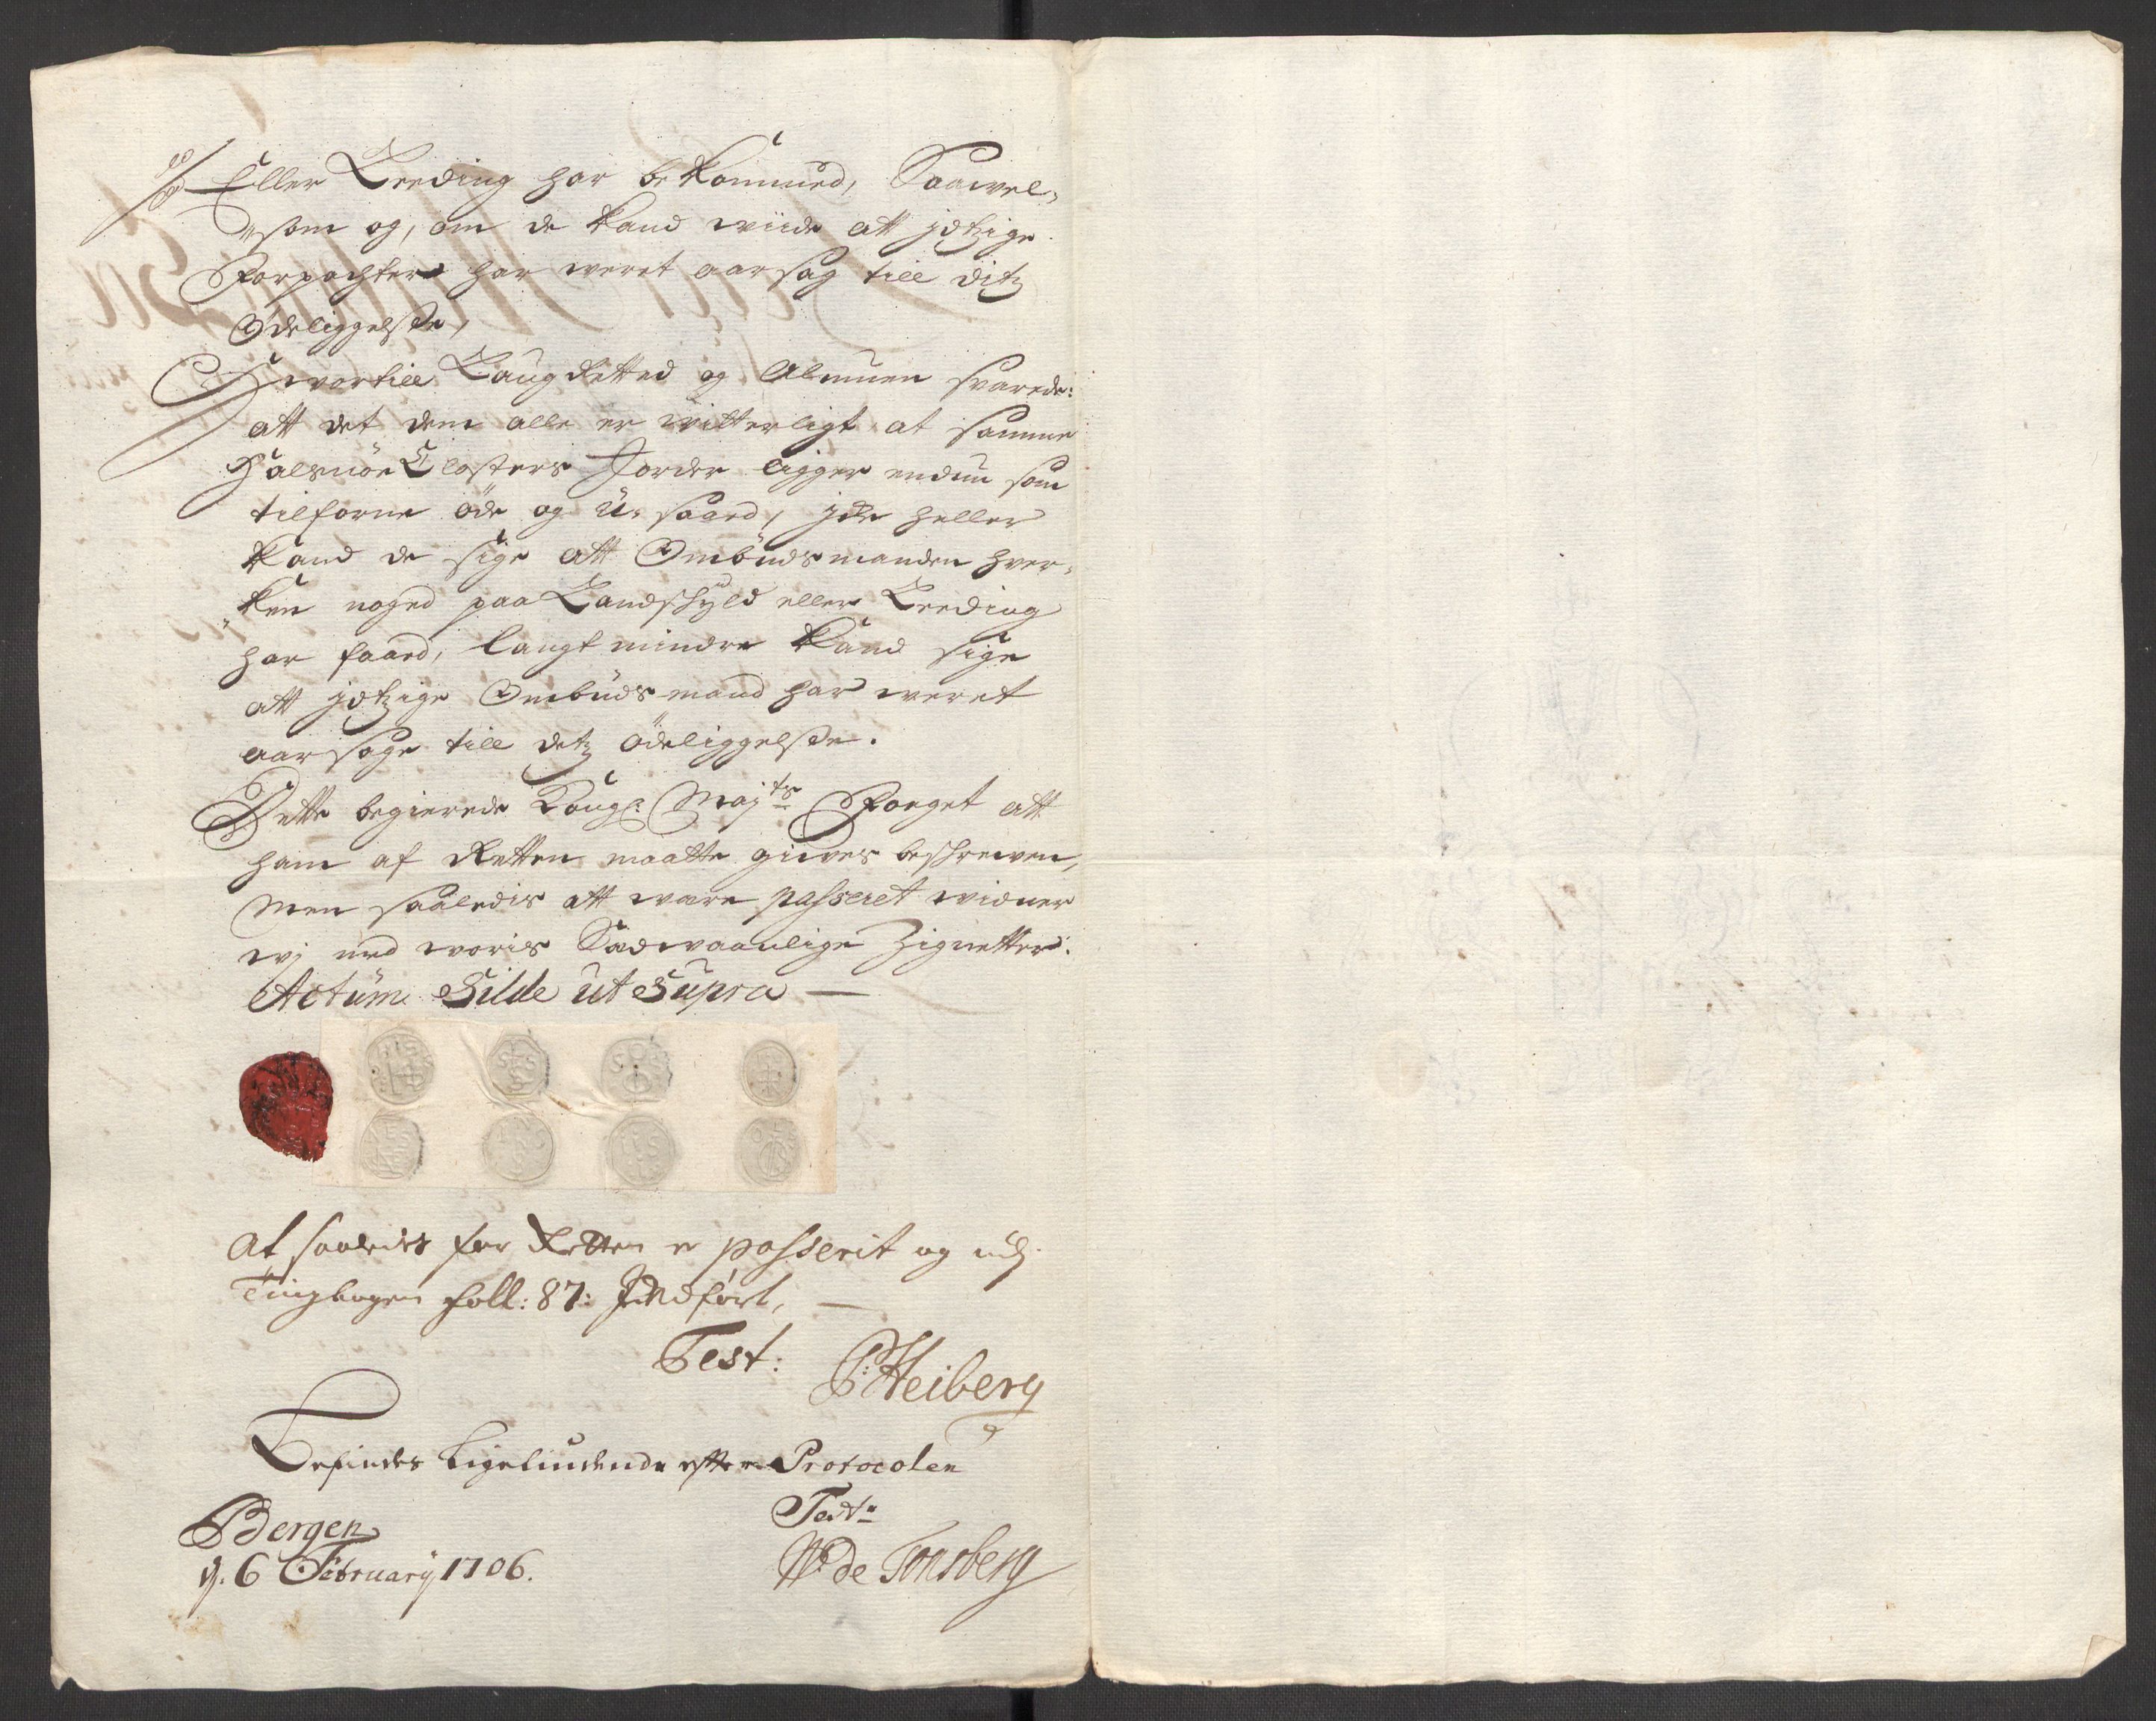 Eller Leeding har bekommed, Saavel„
„som og, om de kand viide att jdtzige
Forpachter har weret aarsag till ditz
Ödeliggelße,
Hvortill Laug Retted og Almuen svarede:
att det dem alle er witterligt at samme
Halsnöe Closters Jorder ligger endnu som
tilforne öde og U-saaed, jcke heller
kand de sige att Ombudsmanden hver„
„ken noged paa Landschyld eller Leeding
har faaed, langt mindre kand sige
att jdtzige Ombudsmand har weret
aarsage till detz ödeliggelße.
Dette begierede Kongl: Maj:ts Foeget att
ham af Retten maatte gives beschreven,
Men saaledis att were passeret vidner
wj med voris Sædvaanlige Zignetter.
Actum Silde ut Supra —
At saaledes for Retten er passerit og udj
Tingbogen foll: 87: Indfört, —
Test:
P: Heiberg
Befindes ligeliudende efter Protocolen
Test:
Bergen
d. 6 February 1706.
W: de Tonsberg